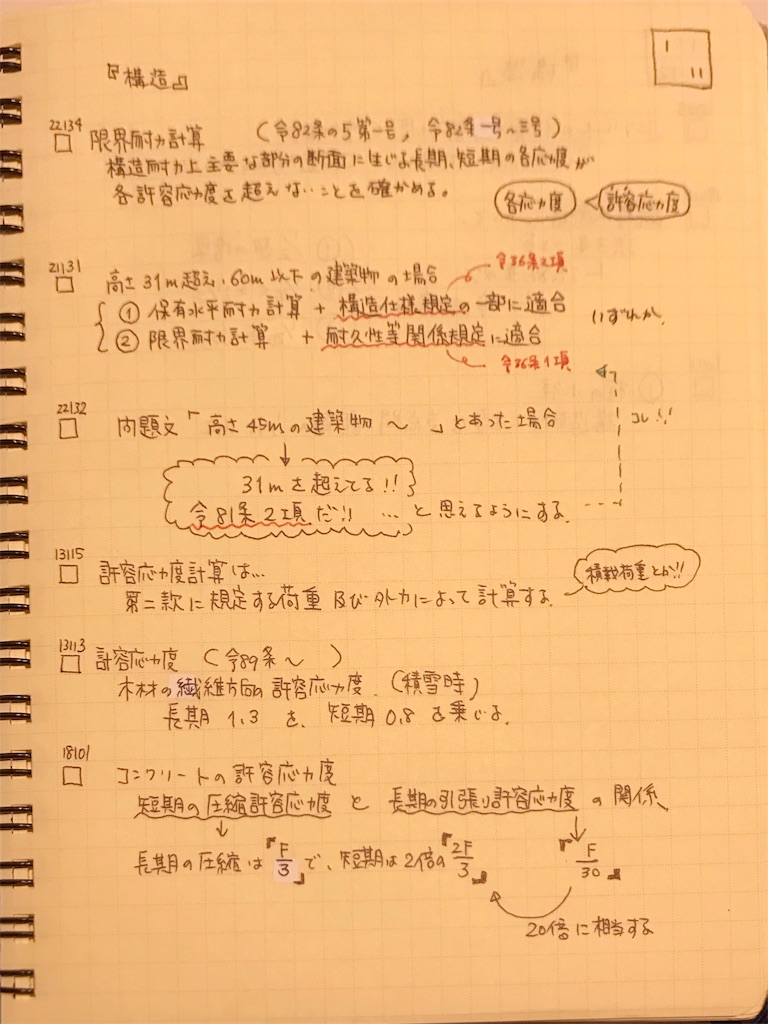 『構造』
22134
限界耐力計算 (令82条の5第一号, 令82条一号〜三号)
構造耐力上主要な部分の断面に生じる長期、短期の各応力度が
各許容応力度を超えないことを確かめる。
各応力度 < 許容応力度
21131
高さ31m超え、60m以下の建築物の場合
令36条2項
① 保有水平耐力計算 + 構造仕様規定の一部に適合
いずれか。
② 限界耐力計算 + 耐久性等関係規定に適合
令36条1項
22132
問題文「高さ45mの建築物 〜 」とあった場合
コレ!!
31mを超えてる!!
令81条2項だ!! … と思えるようにする。
13115
許容応力度計算は…
積載荷重とか!!
第二款に規定する荷重及び外力によって計算する。
13113
許容応力度 (令89条〜 )
木材の繊維方向の許容応力度. (積雪時)
長期1.3を、短期0.8を乗じる。
18101
コンクリートの許容応力度
短期の圧縮許容応力度と長期の引張り許容応力度の関係、
長期の圧縮は『F/3』で、短期は2倍の『2F/3』 『F/30』
20倍に相当する